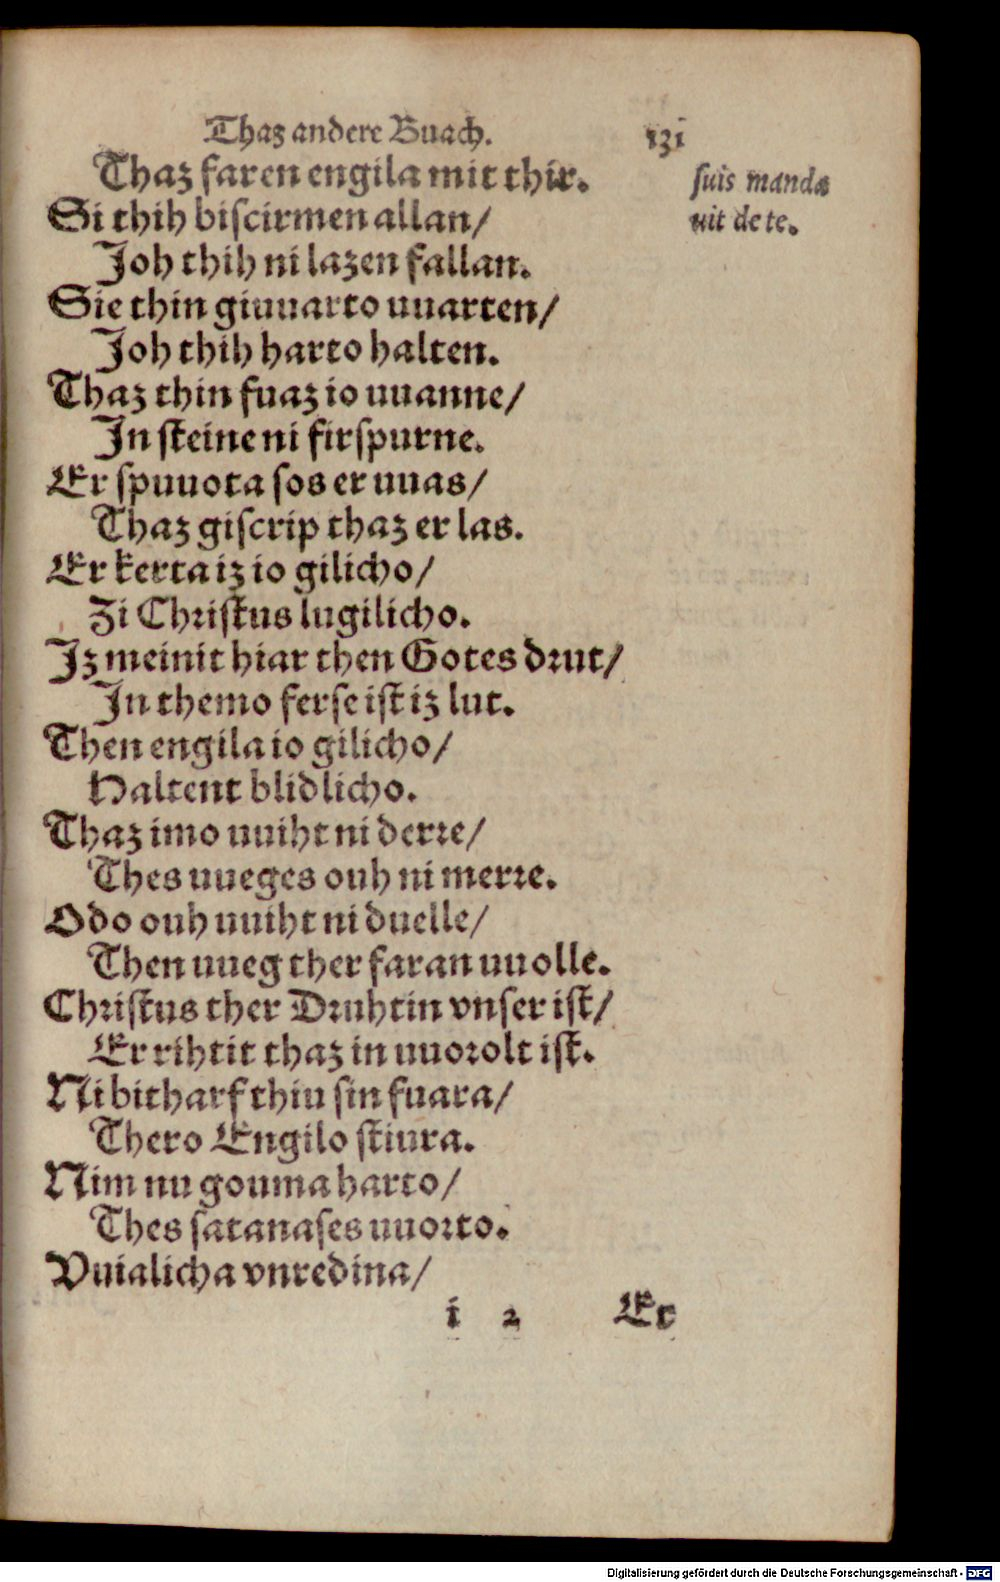 Thaz andere Buach. 131
Thaz faren engila mit thir.
suis manda
uit de te.
Si thih biscirmen allan/
Joh thih ni lazen fallan.
Sie thin giuuarto uuarten/
Joh thih harto halten.
Thaz thin fuaz io uuanne/
In steine ni firspurne.
Er spuuota sos er uuas/
Thaz giscrip thaz er las.
Er kerta iz io gilicho/
Zi Christus lugilicho.
Iz meinit hiar then Gotes drut/
In themo ferse ist iz lut.
Then engila io gilicho/
Haltent blidlicho.
Thaz imo uuiht ni derre/
Thes uueges ouh ni merre.
Odo ouh uuiht ni duelle/
Then uueg ther faran uuolle.
Christus ther Druhtin vnser ist/
Er rihtit thaz in uuorolt ist.
Ni bitharf thiu sin fuara/
Thero Engilo stiura.
Nim nu gouma harto/
Thes satanases uuorto.
Vuialicha vnredina/
i 2 Er
Digitalisierung gefördert durch die Deutsche Forschungsgemeinschaft - DFG